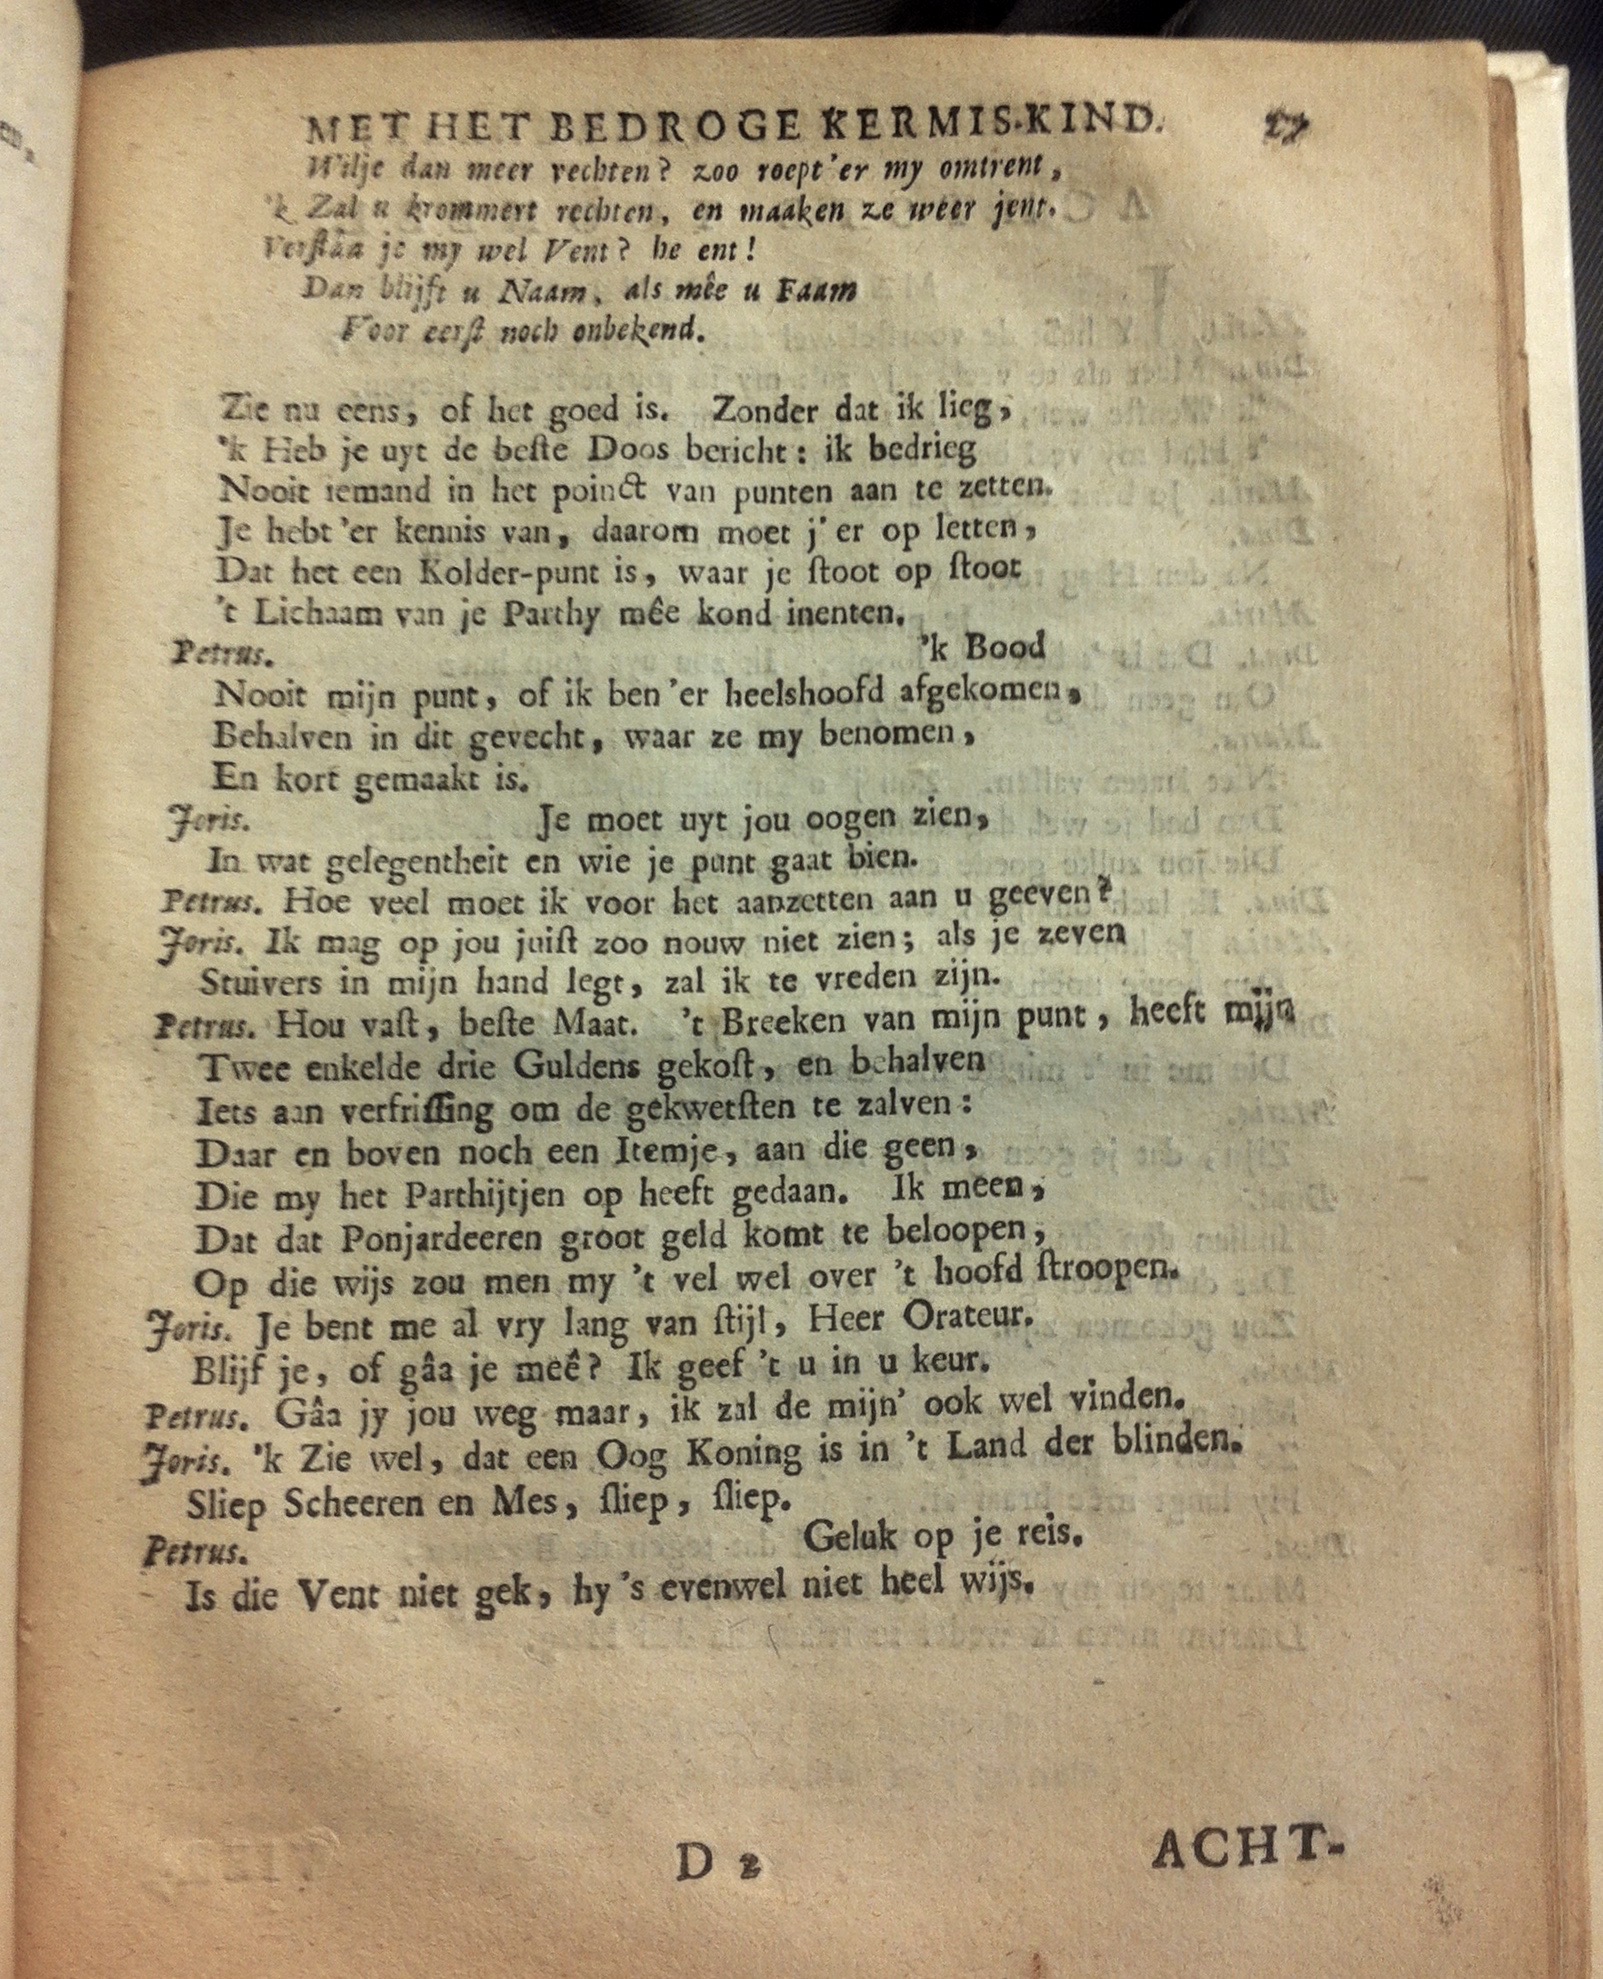 MET HET BEDROGE KERMIS-KIND. 27
Wilje dan meer vechten? zoo roept'er my omtrent,
'k Zal u krommert rechten, en maaken ze weer jent.
Verstâa je my wel Vent? he ent!
Dan blijft u Naam, als mêe u Faam
Voor eerst noch onbekend.
Zie nu eens, of het goed is. Zonder dat ik lieg,
'k Heb je uyt de beste Doos bericht: ik bedrieg
Nooit iemand in het poinct van punten aan te zetten.
Je hebt 'er kennis van, daarom moet j'er op letten,
Dat het een Kolder-punt is, waar je stoot op stoot
't Lichaam van je Parthy mêe kond inenten.
Petrus. 'k Bood
Nooit mijn punt, of ik ben 'er heelshoofd afgekomen,
Behalven in dit gevecht, waar ze my benomen,
En kort gemaakt is.
Joris. Je moet uyt jou oogen zien,
In wat gelegentheit en wie je punt gaat bien.
Petrus. Hoe veel moet ik voor het aanzetten aan u geeven?
Joris. Ik mag op jou juist zoo nouw niet zien; als je zeven
Stuivers in mijn hand legt, zal ik te vreden zijn.
Petrus. Hou vast, beste Maat. 't Breeken van mijn punt, heeft mijn
Twee enkelde drie Guldens gekost, en behalven
Iets aan verfrissing om de gekwetsten te zalven:
Daar en boven noch een Itemje, aan die geen,
Die my het Parthijtjen op heeft gedaan. Ik meen,
Dat dat Ponjardeeren groot geld komt te beloopen,
Op die wijs zou men my 't vel wel over 't hoofd stroopen.
Joris. Je bent me al vry lang van stijl, Heer Orateur.
Blijf je, of gâa je meê? Ik geef 't u in u keur.
Petrus. Gâa jy jou weg maar, ik zal de mijn' ook wel vinden.
Joris. 'k Zie wel, dat een Oog Koning is in 't Land der blinden.
Sliep Scheeren en Mes, sliep, sliep.
Petrus. Geluk op je reis.
Is die Vent niet gek, hy 's evenwel niet heel wijs.
D 2 ACHT-